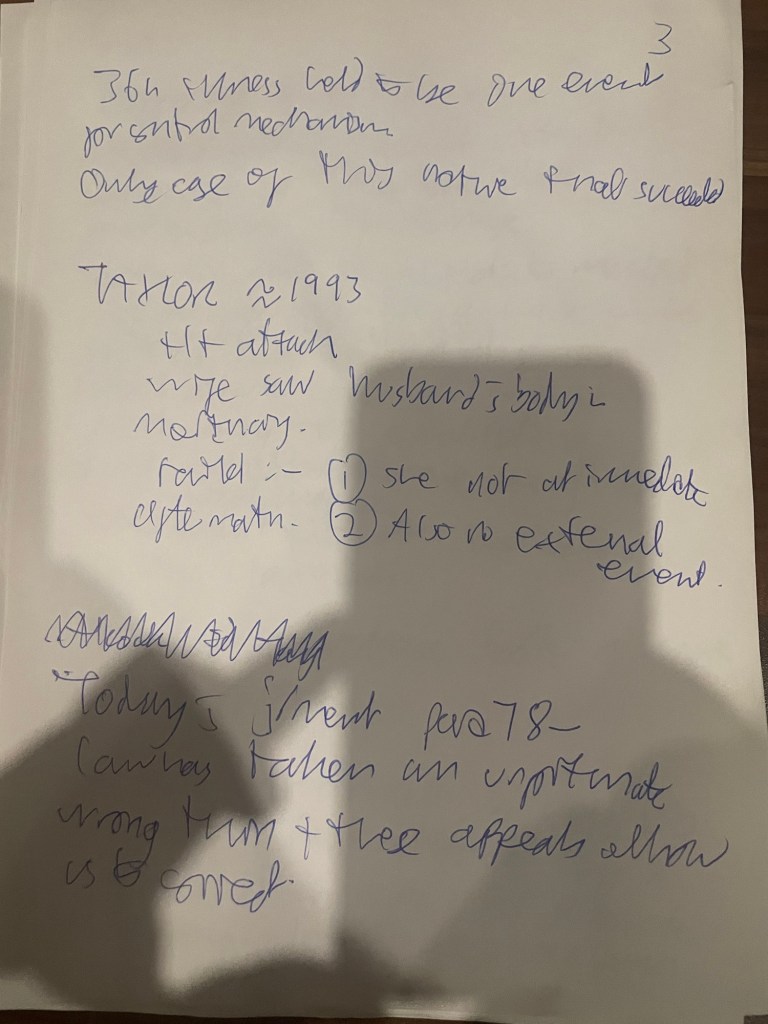 3
36h illness held to be one event
for control mechanism
Only case of this nature + trial succeeded
TAYLOR ≈ 1993
Ht attack
wife saw husband's body in
mortuary.
Failed :- ① she not at immediate
aftermath. ② Also no external
event.
Today's j/ment para 78 -
Law has taken an unfortunate
wrong turn + these appeals allow
us to correct.